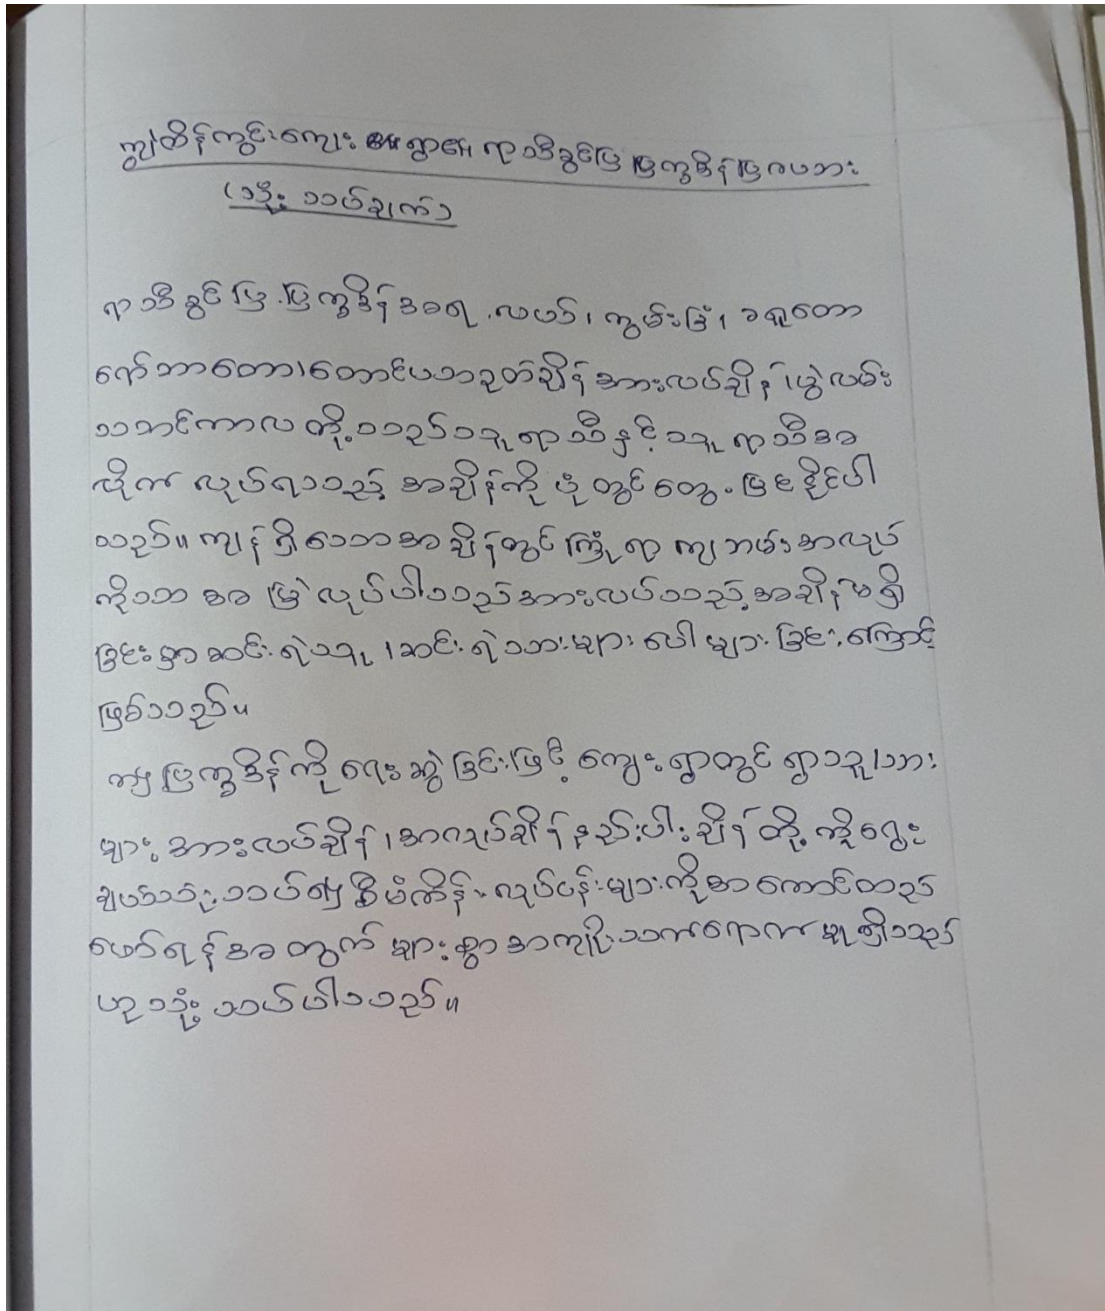 ကျွဲထိန်ကွင်းကျေးရွာ၏ ရာသီခွင်ပြ ပြက္ခဒိန်ပြဇယား
(သုံးသပ်ချက်)
ရာသီခွင်ပြ ပြက္ခဒိန်အရ လယ်၊ ကွမ်းခြံ၊ ရော်ဘာတော၊
တောင်ယာဥတ်ချိန် အားလပ်ချိန်၊ ပွဲလမ်း
သဘင်ကာလ တို့သည် သူ့ရာသီနှင့်သူ ရာသီအ
လိုက် လုပ်ရသည့် အချိန်ကို ပုံတွင် တွေ့မြင်နိုင်ပါ
သည်။ ကျန်ရှိသောအချိန်တွင် ကြုံရာကျဘမ်းအလုပ်
ကိုသာ အမြဲလုပ်ပါသည် အားလပ်သည့်အချိန်မရှိ
ခြင်းမှာ ဆင်းရဲသူ၊ ဆင်းရဲသားများ ပေါများခြင်းကြောင့်
ဖြစ်သည်။
ဤပြက္ခဒိန်ကို ရေးဆွဲခြင်းဖြင့် ကျေးရွာတွင် ရွာသူ/သား
များ အားလပ်ချိန်၊ အလုပ်ချိန် နည်းပါးချိန် တို့ကို ရွေး
ချယ်သုံးသပ်၍ စီမံကိန်းလုပ်ငန်းများကို အကောင်အထည်
ဖော်ရန်အတွက် များစွာအကျိုးသက်ရောက်မှုရှိသည်
ဟု သုံးသပ်ပါသည်။